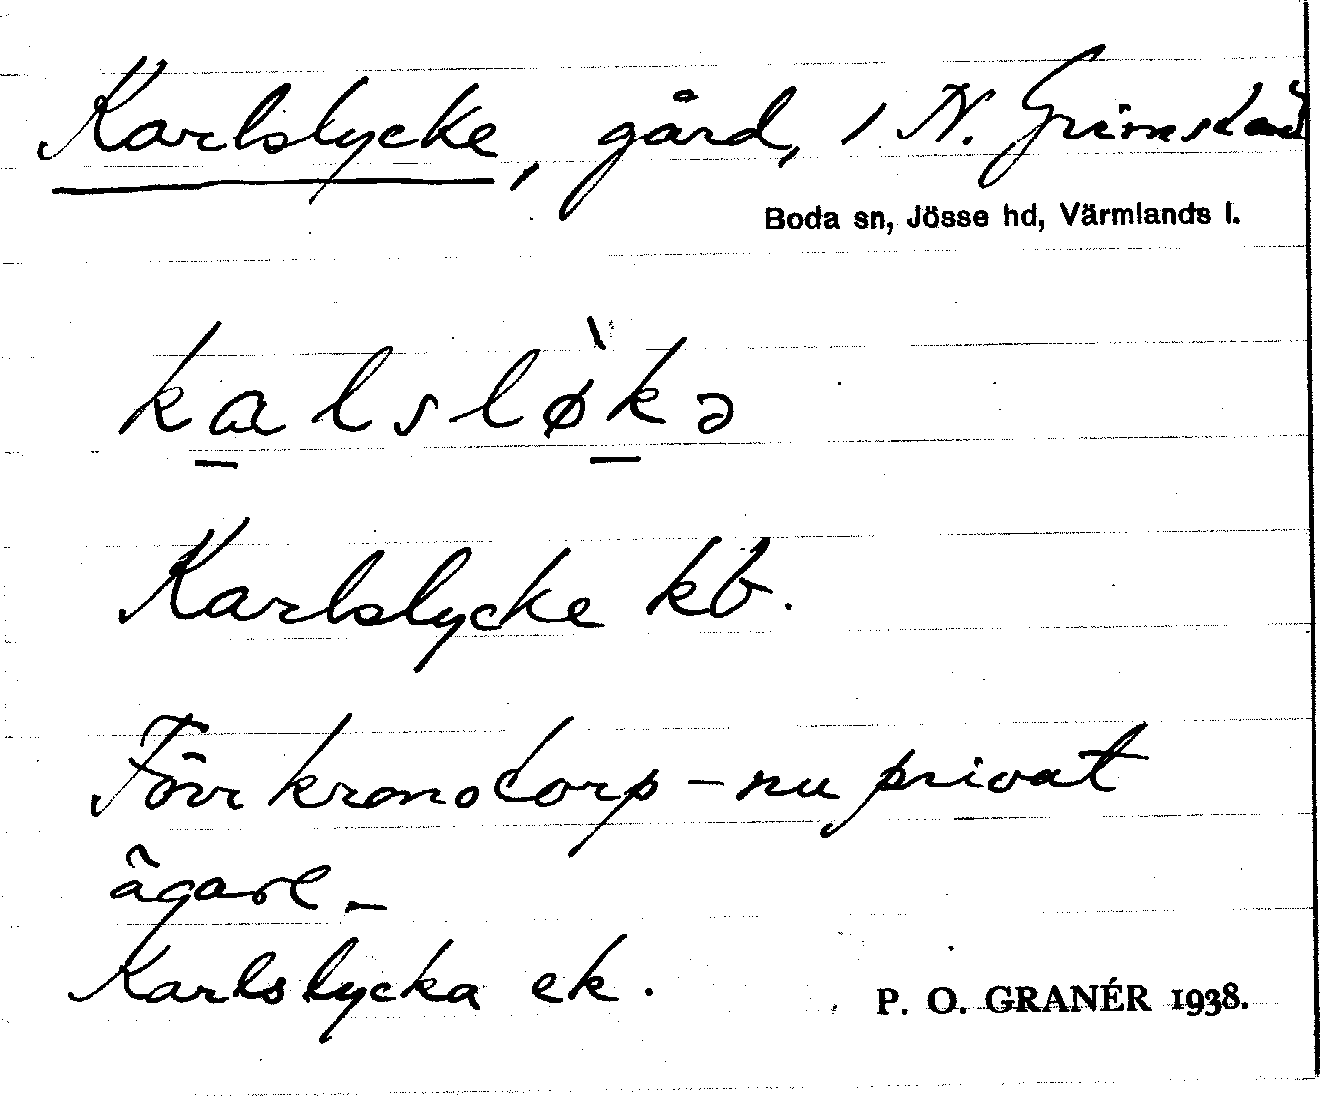 Karlslycke, gård, i N. Grimstad
Boda sn, Jösse hd, Värmlands l.
kalslø̀kə
Karlslycke kb.
Förr kronotorp – nu privat
ägare –
Karlslycka ek.
P. O. GRANÉR 1938.